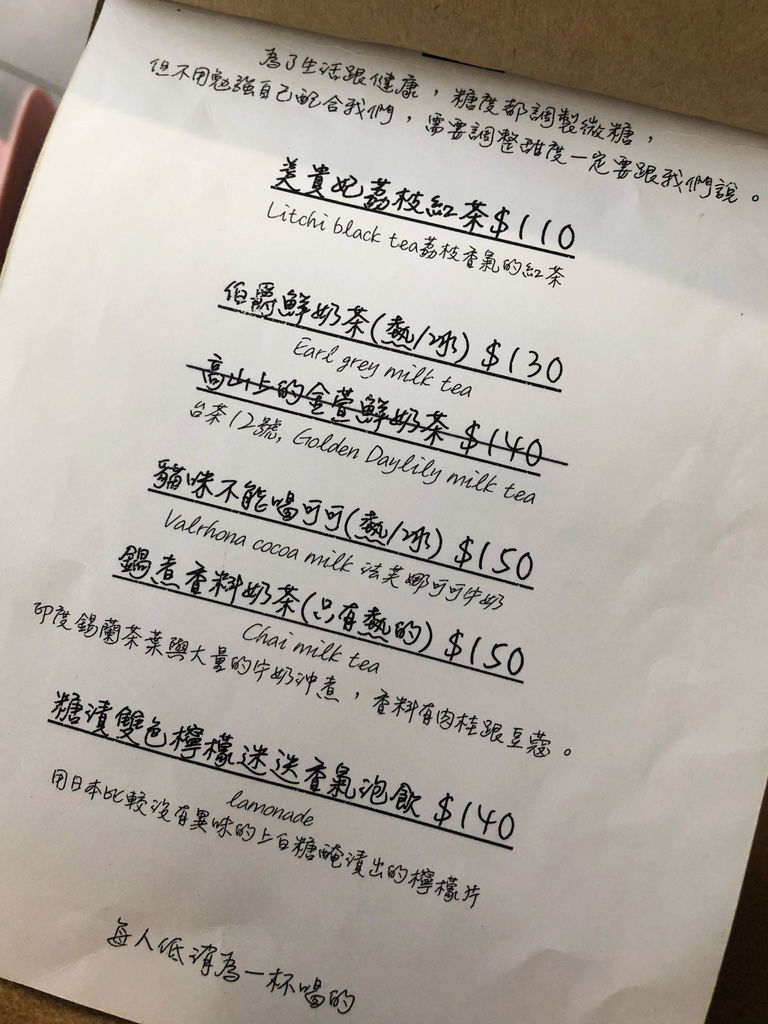 為了生活跟健康，糖度都調製微糖，
但不用勉強自己配合我們，需要調整甜度一定要跟我們說。
美貴妃荔枝紅茶$110
Litchi black tea荔枝香氣的紅茶
伯爵鮮奶茶(熱/冰) $130
Earl grey milk tea
高山上的金萱鮮奶茶 $140
台茶12號, Golden Daylily milk tea
貓咪不能喝可可(熱/冰) $150
Valrhona cocoa milk 法芙娜可可牛奶
鍋煮香料奶茶(只有熱的) $150
Chai milk tea
印度錫蘭茶葉與大量的牛奶沖煮，香料有肉桂跟豆蔻。
糖漬雙色檸檬迷迭香氣泡飲 $140
lamonade
用日本比較沒有異味的上白糖醃漬出的檸檬片
每人低消為一杯喝的